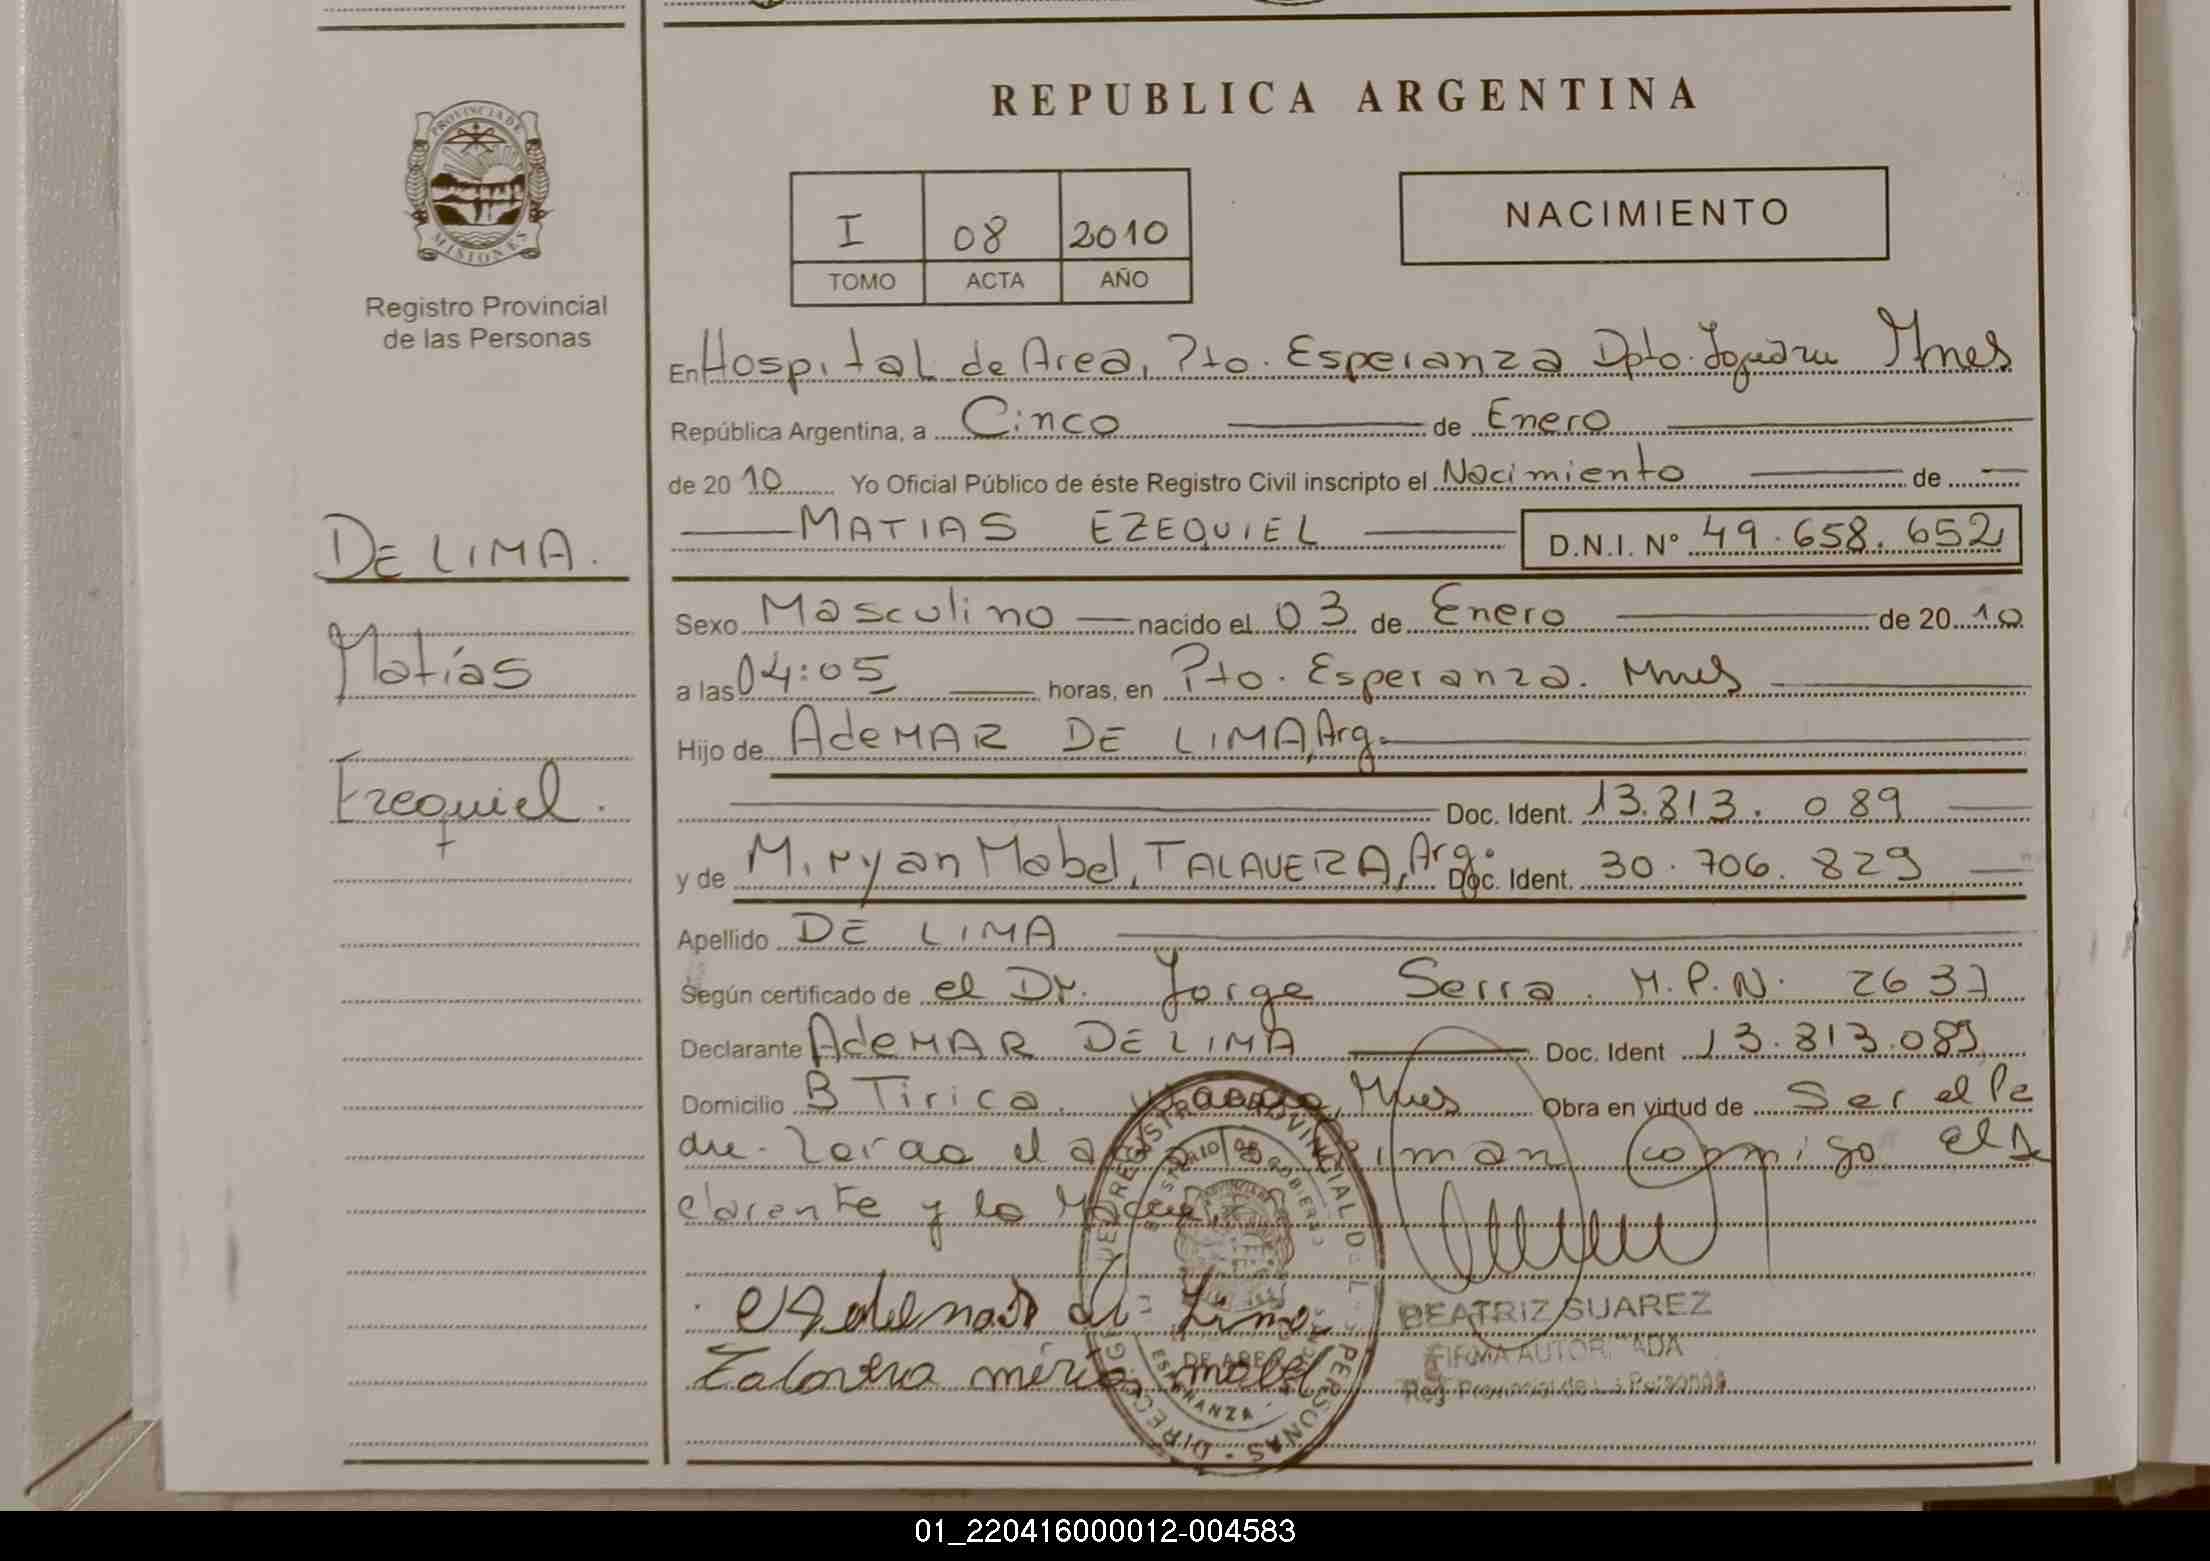 REPUBLICA ARGENTINA
PROVINCIA DE
MISIONES
Registro Provincial
de las Personas
I 08 2010
TOMO ACTA AÑO
NACIMIENTO
En Hospital de Area, Pto. Esperanza Dpto. Iguazu Mnes
República Argentina, a Cinco de Enero
de 2010 Yo Oficial Público de éste Registro Civil inscripto el Nacimiento de
MATIAS EZEQUIEL D.N.I. Nº 49.658.652
DE LIMA.
Matías
Ezequiel.
Sexo Masculino nacido el 03 de Enero de 2010
a las 04:05 horas, en Pto. Esperanza. Mnes
Hijo de AdeMAR DE LIMA, Arg.
Doc. Ident. 13.813.089
y de Miryan Mabel, TALAVERA, Arg. Doc. Ident. 30.706.829
Apellido DE LIMA
Según certificado de el Dr. Jorge Serra. M.P.N. 2637
Declarante AdeMAR DE LIMA Doc. Ident 13.813.089
Domicilio B Tirica. Mnes Obra en virtud de Ser el Pa
dre. el conmigo el De
clarante y la Madre.
Ademar de Lima
Talavera miriam mabel
REGISTRO PROVINCIAL DE LAS PERSONAS
ESPERANZA
BEATRIZ SUAREZ
FIRMA AUTORIZADA
Reg. Provincial de las Personas
01_220416000012-004583